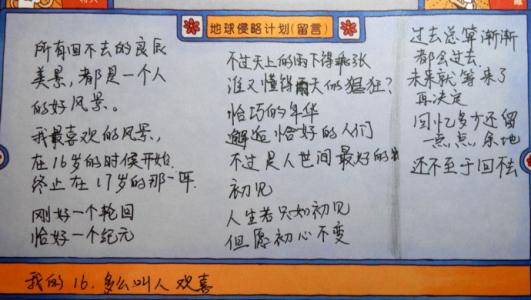 地球侵略计划(留言)
所有回不去的良辰
美景，都是一个人
的好风景。
我最喜欢的风景，
在16岁的时候开始.
终止在17岁的那一年.
刚好一个轮回
恰好一个纪元
不过天上的雨下得乖张
谁又懂得雨天的猖狂?
恰巧的年华
邂逅恰好的人们
不过是人世间最好的
初见
人生若只如初见
但愿初心不变
过去总算渐渐
都会过去.
未来就等来了
再决定
回忆多少还留
一点点余地
还不至于回不去
我的16.多么叫人欢喜